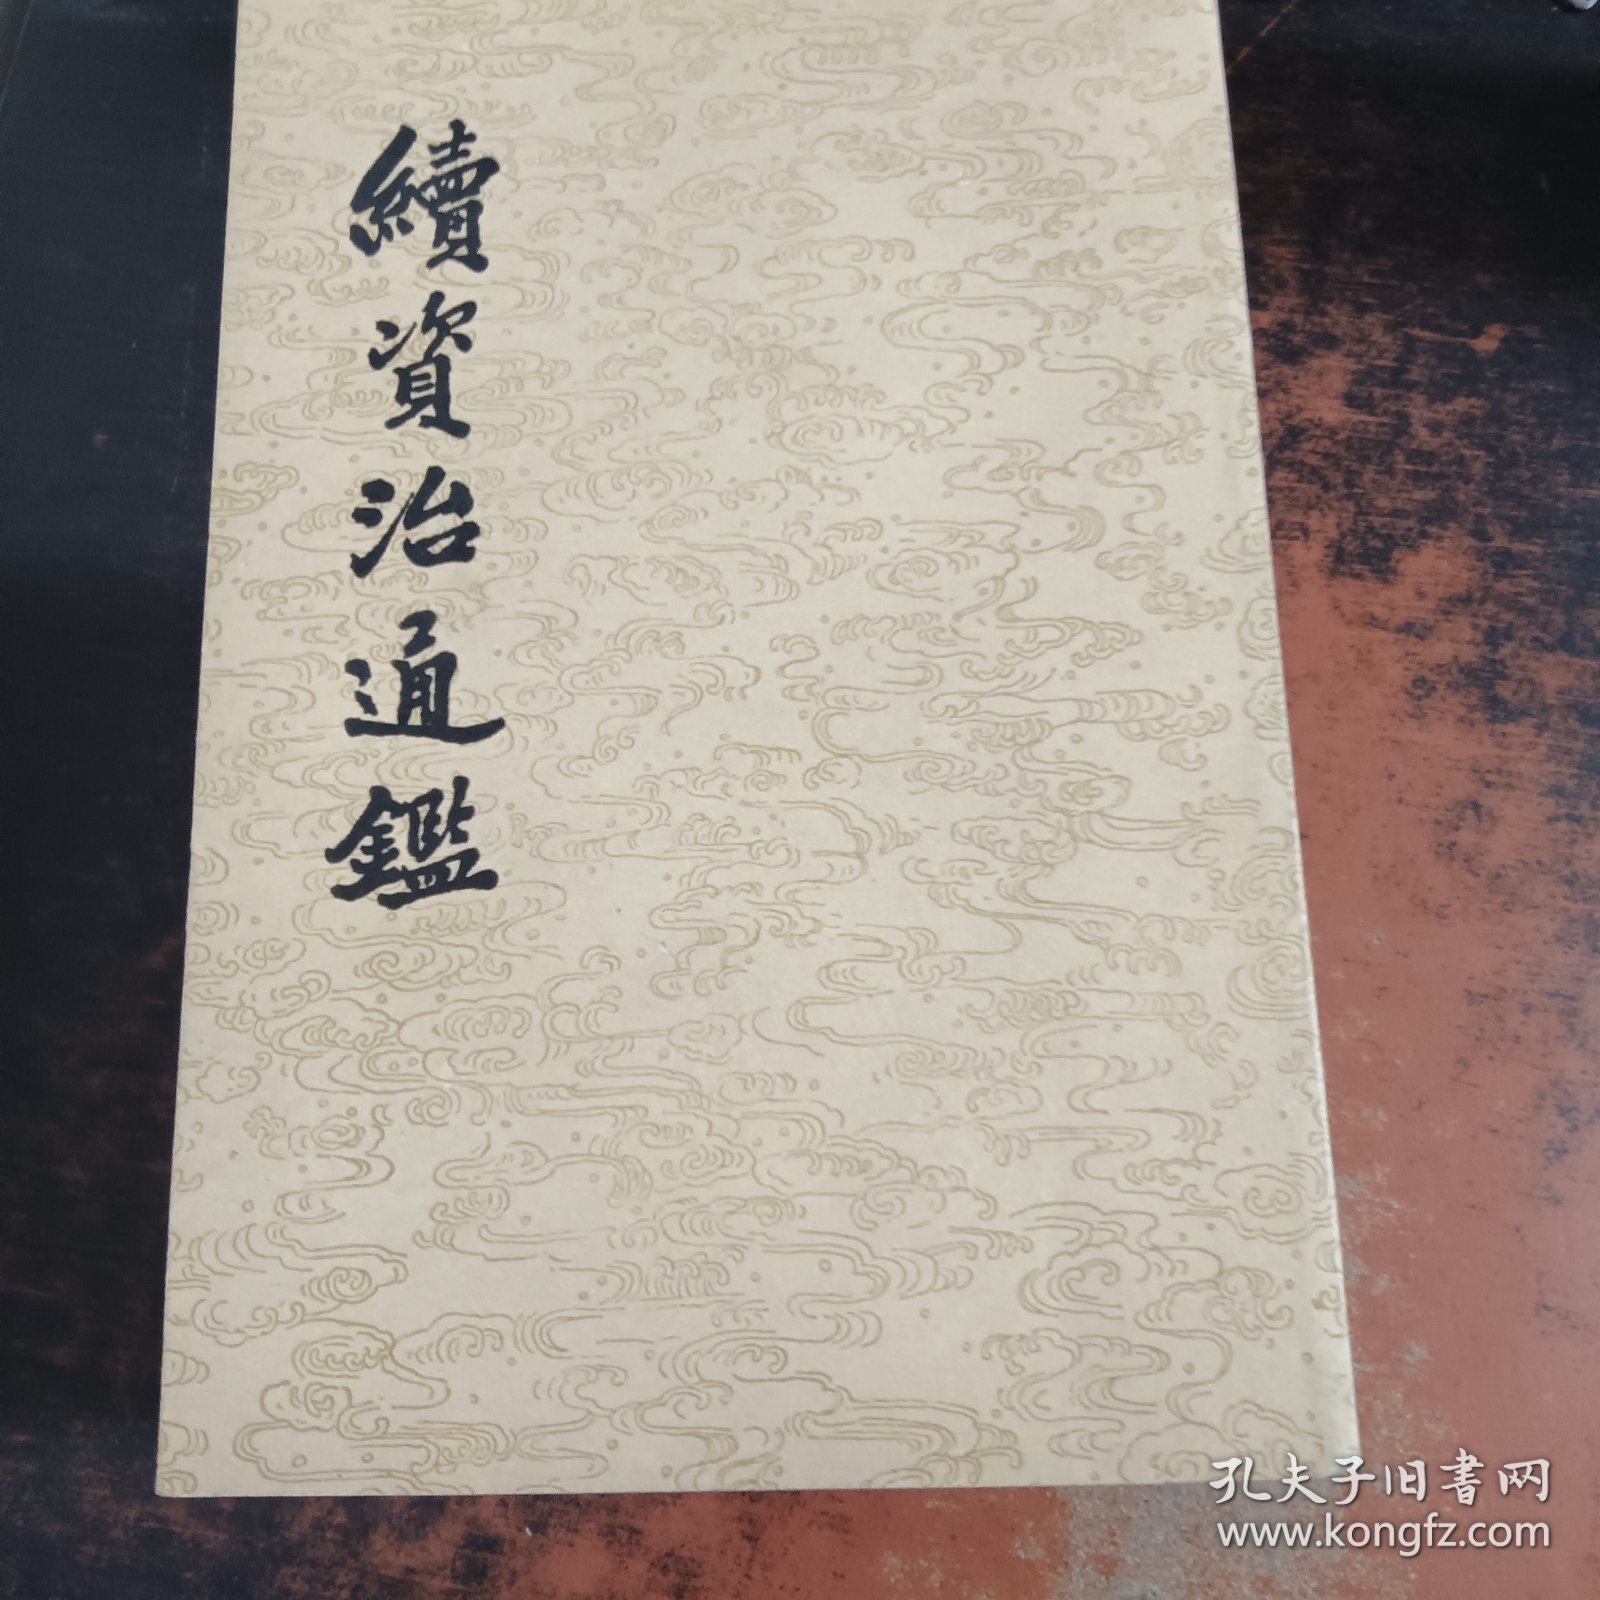 續資治通鑑
孔夫子旧書网
www.kongfz.com